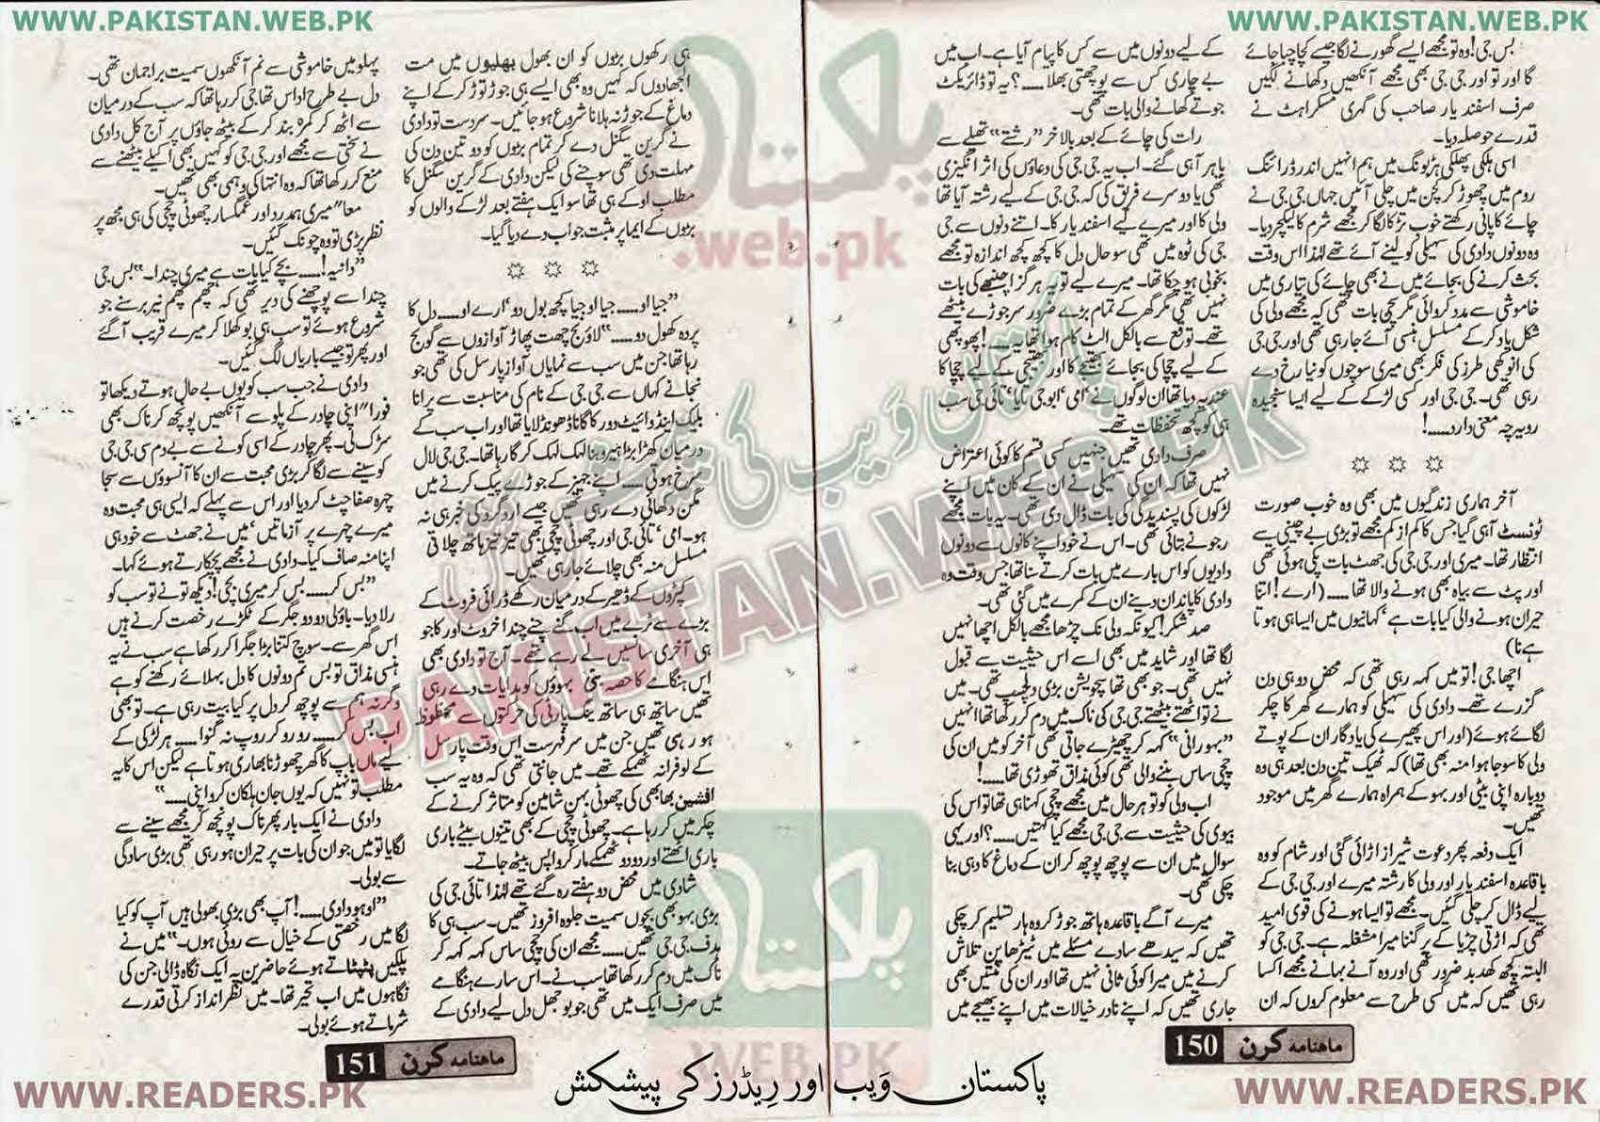 WWW.PAKISTAN.WEB.PK
WWW.PAKISTAN.WEB.PK
بس جی! وہ تو مجھے ایسے گھورنے لگا جیسے کچا چبا جائے
گا اور تو اور جی جی بھی مجھے آنکھیں دکھانے لگیں
صرف اسفندیار صاحب کی گہری مسکراہٹ نے
قدرے حوصلہ دیا۔
اسی ہلکی پھلکی ہڑبونگ میں ہم انہیں اندر ڈرائنگ
روم میں چھوڑ کر کچن میں چلی آئیں جہاں جی جی نے
چائے کا پانی رکھتے خوب تڑکا لگا کر مجھے شرم کا لیکچر دیا۔
وہ دونوں دادی کی سہیلی کو لینے آئے تھے لہٰذا اس وقت
بحث کرنے کی بجائے میں نے بھی چائے کی تیاری میں
خاموشی سے مدد کروائی مگر سچی بات تھی کہ مجھے ولی کی
شکل یاد کر کے مسلسل ہنسی آئے جا رہی تھی اور جی جی
کی انوکھی طرز کی فکر بھی میری سوچوں کو نیا رخ دے
رہی تھی۔ جی جی اور کسی لڑکے کے لیے ایسا سنجیدہ
رویہ چہ معنی دارد.....!
☼ ☼ ☼
آخر ہماری زندگیوں میں بھی وہ خوب صورت
ٹوئسٹ آ ہی گیا جس کا کم از کم مجھے تو بڑی بے چینی سے
انتظار تھا۔ میری اور جی جی کی جھٹ بات پکی ہوئی تھی
اور پٹ سے بیاہ بھی ہونے والا تھا.....(ارے! اتنا
حیران ہونے والی کیا بات ہے‘ کہانیوں میں ایسا ہی ہوتا
ہے نا)
اچھا جی! تو میں کہہ رہی تھی کہ محض دو ہی دن
گزرے تھے۔ دادی کی سہیلی کو ہمارے گھر کا چکر
لگائے ہوئے (اور اس پھیرے کی یادگار ان کے پوتے
ولی کا سوجا ہوا منہ بھی تھا) کہ ٹھیک تین دن بعد ہی وہ
دوبارہ اپنی بیٹی اور بہو کے ہمراہ ہمارے گھر میں موجود
تھیں۔
ایک دفعہ پھر دعوت شیراز اڑائی گئی اور شام کو وہ
باقاعدہ اسفندیار اور ولی کا رشتہ میرے اور جی جی کے
لیے ڈال کر چلی گئیں۔ مجھے تو ایسا ہونے کی قوی امید
تھی کہ اڑتی چڑیا کے پر گننا میرا مشغلہ ہے۔ جی جی کو
البتہ کچھ کھد بد ضرور تھی اور وہ آنے بہانے مجھے اکسا
رہی تھیں کہ میں کسی طرح سے معلوم کروں کہ ان
کے لیے دونوں میں سے کس کا پیام آیا ہے۔ اب میں
بے چاری کس سے پوچھتی بھلا.....؟ یہ تو ڈائریکٹ
جوتے کھانے والی بات تھی۔
رات کی چائے کے بعد بالاخر ”رشتے“ تھیلے سے
باہر آ ہی گئے۔ اب یہ جی جی کی دعاؤں کی اثر انگیزی
تھی یا دوسرے فریق کی کہ جی جی کے لیے رشتہ آیا تھا
ولی کا اور میرے لیے اسفندیار کا۔ اتنے دنوں سے جی
جی کی ٹوہ میں تھی سو حال دل کا کچھ کچھ اندازہ تو مجھے
بخوبی ہو چکا تھا۔ میرے لیے تو یہ ہرگز اچنبھے کی بات
نہیں تھی مگر گھر کے تمام بڑے ضرور سر جوڑے بیٹھے
تھے۔ توقع سے بالکل الٹ کام ہوا تھا یہ.....! پھوپھی
کے لیے چچا کی بجائے بھتیجے کا اور بھتیجی کے لیے چچا کا
عندیہ دیا تھا ان لوگوں نے‘ امی‘ ابو جی‘ تایا‘ تائی جی سب
ہی کو کچھ تحفظات تھے۔
صرف دادی تھیں جنہیں کسی قسم کا کوئی اعتراض
نہیں تھا کہ ان کی سہیلی نے ان کے کان میں اپنے
لڑکوں کی پسندیدگی کی بات ڈال دی تھی۔ یہ بات مجھے
رجو نے بتائی تھی۔ اس نے خود اپنے کانوں سے دونوں
دادیوں کو اس بارے میں بات کرتے سنا تھا جس وقت وہ
دادی کا پاندان دینے ان کے کمرے میں گئی تھی۔
صد شکر! کیونکہ ولی نک چڑھا مجھے بالکل اچھا نہیں
لگا تھا اور شاید میں بھی اسے اس حیثیت سے قبول
نہیں تھی۔ جو بھی تھا سچویشن بڑی دلچسپ تھی۔ میں
نے تو اٹھتے بیٹھتے جی جی کی ناک میں دم کر رکھا تھا انہیں
”بہورانی“ کہہ کر چھیڑے جاتی تھی آخر کو میں ان کی
چچی ساس بننے والی تھی کوئی مذاق تھوڑی تھا.....!
اب ولی کو تو ہر حال میں مجھے چچی کہنا ہی تھا تو اس کی
بیوی کی حیثیت سے جی جی مجھے کیا کہتیں.....؟ اور یہی
سوال میں ان سے پوچھ پوچھ کر ان کے دماغ کا دہی بنا
چکی تھی۔
میرے آگے باقاعدہ ہاتھ جوڑ کر وہ ہار تسلیم کر چکی
تھیں کہ سیدھے سادے مسئلے میں ٹیڑھا پن تلاش
کرنے میں میرا کوئی ثانی نہیں تھا اور ان کی منتیں بھی
جاری تھیں کہ اپنے نادر خیالات میں اپنے بھیجے میں
ماہنامہ کرن 150
ہی رکھوں بڑوں کو ان بھول بھلیوں میں مت
الجھادوں کہ کہیں وہ بھی ایسے ہی جوڑ توڑ کر کے اپنے
دماغ کے جوڑ نہ ہلانا شروع ہو جائیں۔ سردست تو دادی
نے گرین سگنل دے کر تمام بڑوں کو دو تین دن کی
مہلت دی تھی سوچنے کی لیکن دادی کے گرین سگنل کا
مطلب اوکے ہی تھا سو ایک ہفتے بعد لڑکے والوں کو
بڑوں کے ایما پر مثبت جواب دے دیا گیا۔
☼ ☼ ☼
”جیا او..... جیا او جیا کچھ بول دو‘ ارے او..... دل کا
پردہ کھول دو.....“ لاؤنج چھت پھاڑ آوازوں سے گونج
رہا تھا جن میں سب سے نمایاں آواز پارسل کی تھی جو
نجانے کہاں سے جی جی کے نام کی مناسبت سے پرانا
بلیک اینڈ وائیٹ دور کا گانا ڈھونڈ لایا تھا اور اب سب کے
درمیان کھڑا بڑا ہیرو بنا لہک لہک کر گا رہا تھا۔ جی جی لال
سرخ ہوتی..... اپنے جہیز کے جوڑے پیک کرنے میں
مگن دکھائی دے رہی تھیں جیسے ارد گرد کی خبر ہی نہ
ہو۔ امی‘ تائی جی اور چھوٹی چچی بھی تیز تیز ہاتھ چلاتی
مسلسل منہ بھی چلائے جا رہی تھیں۔
کپڑوں کے ڈھیر کے درمیان رکھے ڈرائی فروٹ کے
بڑے سے ٹرے میں اب گنے چنے چند اخروٹ اور کاجو
ہی آخری سانسیں لے رہے تھے۔ آج تو دادی بھی
اس ہنگامے کا حصہ بنی بہوؤں کو ہدایات دے رہی
تھیں ساتھ ہی ساتھ ینگ پارٹی کی حرکتوں سے محظوظ
ہو رہی تھیں جن میں سرفہرست اس وقت پارسل
کے لوفرانہ ٹھمکے تھے۔ میں جانتی تھی کہ وہ یہ سب
افشین بھابھی کی چھوٹی بہن شامین کو متاثر کرنے کے
چکر میں کر رہا ہے۔ چھوٹی چچی کے بھی تینوں بیٹے باری
باری اٹھتے اور دو دو ٹھمکے مار کر واپس بیٹھ جاتے۔
شادی میں محض دو ہفتے رہ گئے تھے لہٰذا تائی جی کی
بڑی بہو بھی بچوں سمیت جلوہ افروز تھیں۔ سب ہی کا
ہدف جی جی تھیں..... مجھے ان کی چچی ساس کہہ کہہ کر
ناک میں دم کر رکھا تھا سب نے۔ اس سارے ہنگامے
میں صرف ایک میں تھی جو بوجھل دل لیے دادی کے
پہلو میں خاموشی سے نم آنکھوں سمیت براجمان تھی۔
دل بے طرح اداس تھا جی کر رہا تھا کہ سب کے درمیان
سے اٹھ کر کمرہ بند کر کے بیٹھ جاؤں پر آج کل دادی
نے سختی سے مجھے اور جی جی کو کہیں بھی اکیلے بیٹھنے سے
منع کر رکھا تھا کہ وہ انتہا کی وہمی بھی تھیں۔
معا” میری ہمدرد اور غمگسار چھوٹی چچی کی ہی مجھ پر
نظر پڑی تو وہ چونک گئیں۔
”دانیہ!..... بچے کیا بات ہے میری چندا۔“ بس جی
چندا سے پوچھنے کی دیر تھی کہ چھم چھم نیر برسنے جو
شروع ہوئے تو سب ہی بوکھلا کر میرے قریب آ گئے
اور پھر تو جیسے باریاں لگ گئیں۔
دادی نے جب سب کو یوں بے حال ہوتے دیکھا تو
فورا” اپنی چادر کے پلو سے آنکھیں پونچھ کر ناک بھی
سڑک لی۔ پھر چادر کے اسی کونے سے بے دم سی جی جی
کو سینے سے لگا کر بڑی محبت سے ان کا آنسوؤں سے سجا
چہرہ صفاچٹ کر دیا اور اس سے پہلے کہ ایسی ہی محبت وہ
میرے چہرے پر آزماتیں‘ میں نے جھٹ سے خود ہی
اپنا منہ صاف کیا۔ دادی نے مجھے پچکارتے ہوئے کہا۔
”بس کر..... بس کر میری بچی! دیکھ تو نے تو سب کو
رلا دیا۔ باؤلی دو دو جگر کے ٹکڑے رخصت کرنے ہیں
اس گھر سے۔ سوچ کتنا بڑا جگرا کر رکھا ہے سب نے یہ
ہنسی مذاق تو بس تم دونوں کا دل بہلائے رکھنے کو ہے
وگرنہ ہم سے پوچھ کر دل پر کیا بیت رہی ہے۔ تو بھی
اب بس کر..... رو رو کر روپ نہ گنوا..... ہر لڑکی کے
لیے ماں باپ کا گھر چھوڑنا بھاری ہوتا ہے لیکن اس کا یہ
مطلب تو نہیں کہ یوں جان ہلکان کر وانی.....“
دادی نے ایک بار پھر ناک پونچھ کر مجھے سینے سے
لگایا تو میں جو ان کی بات پر حیران ہو رہی تھی بڑی سادگی
سے بولی۔
”اوہو دادی.....! آپ بھی بڑی بھولی ہیں آپ کو کیا
لگا میں رخصتی کے خیال سے روئی ہوں۔“ میں نے
پلکیں پٹپٹاتے ہوئے حاضرین پہ ایک نگاہ ڈالی جن کی
نگاہوں میں اب تحیر تھا۔ میں نظر انداز کرتی قدرے
شرماتے ہوئے بولی۔
ماہنامہ کرن 151
پاکستان ویب اور ریڈرز کی پیشکش
WWW.READERS.PK
WWW.READERS.PK
پاکستان
.web.pk
PAKISTAN.WEB.PK
پاکستان
WEB.PK